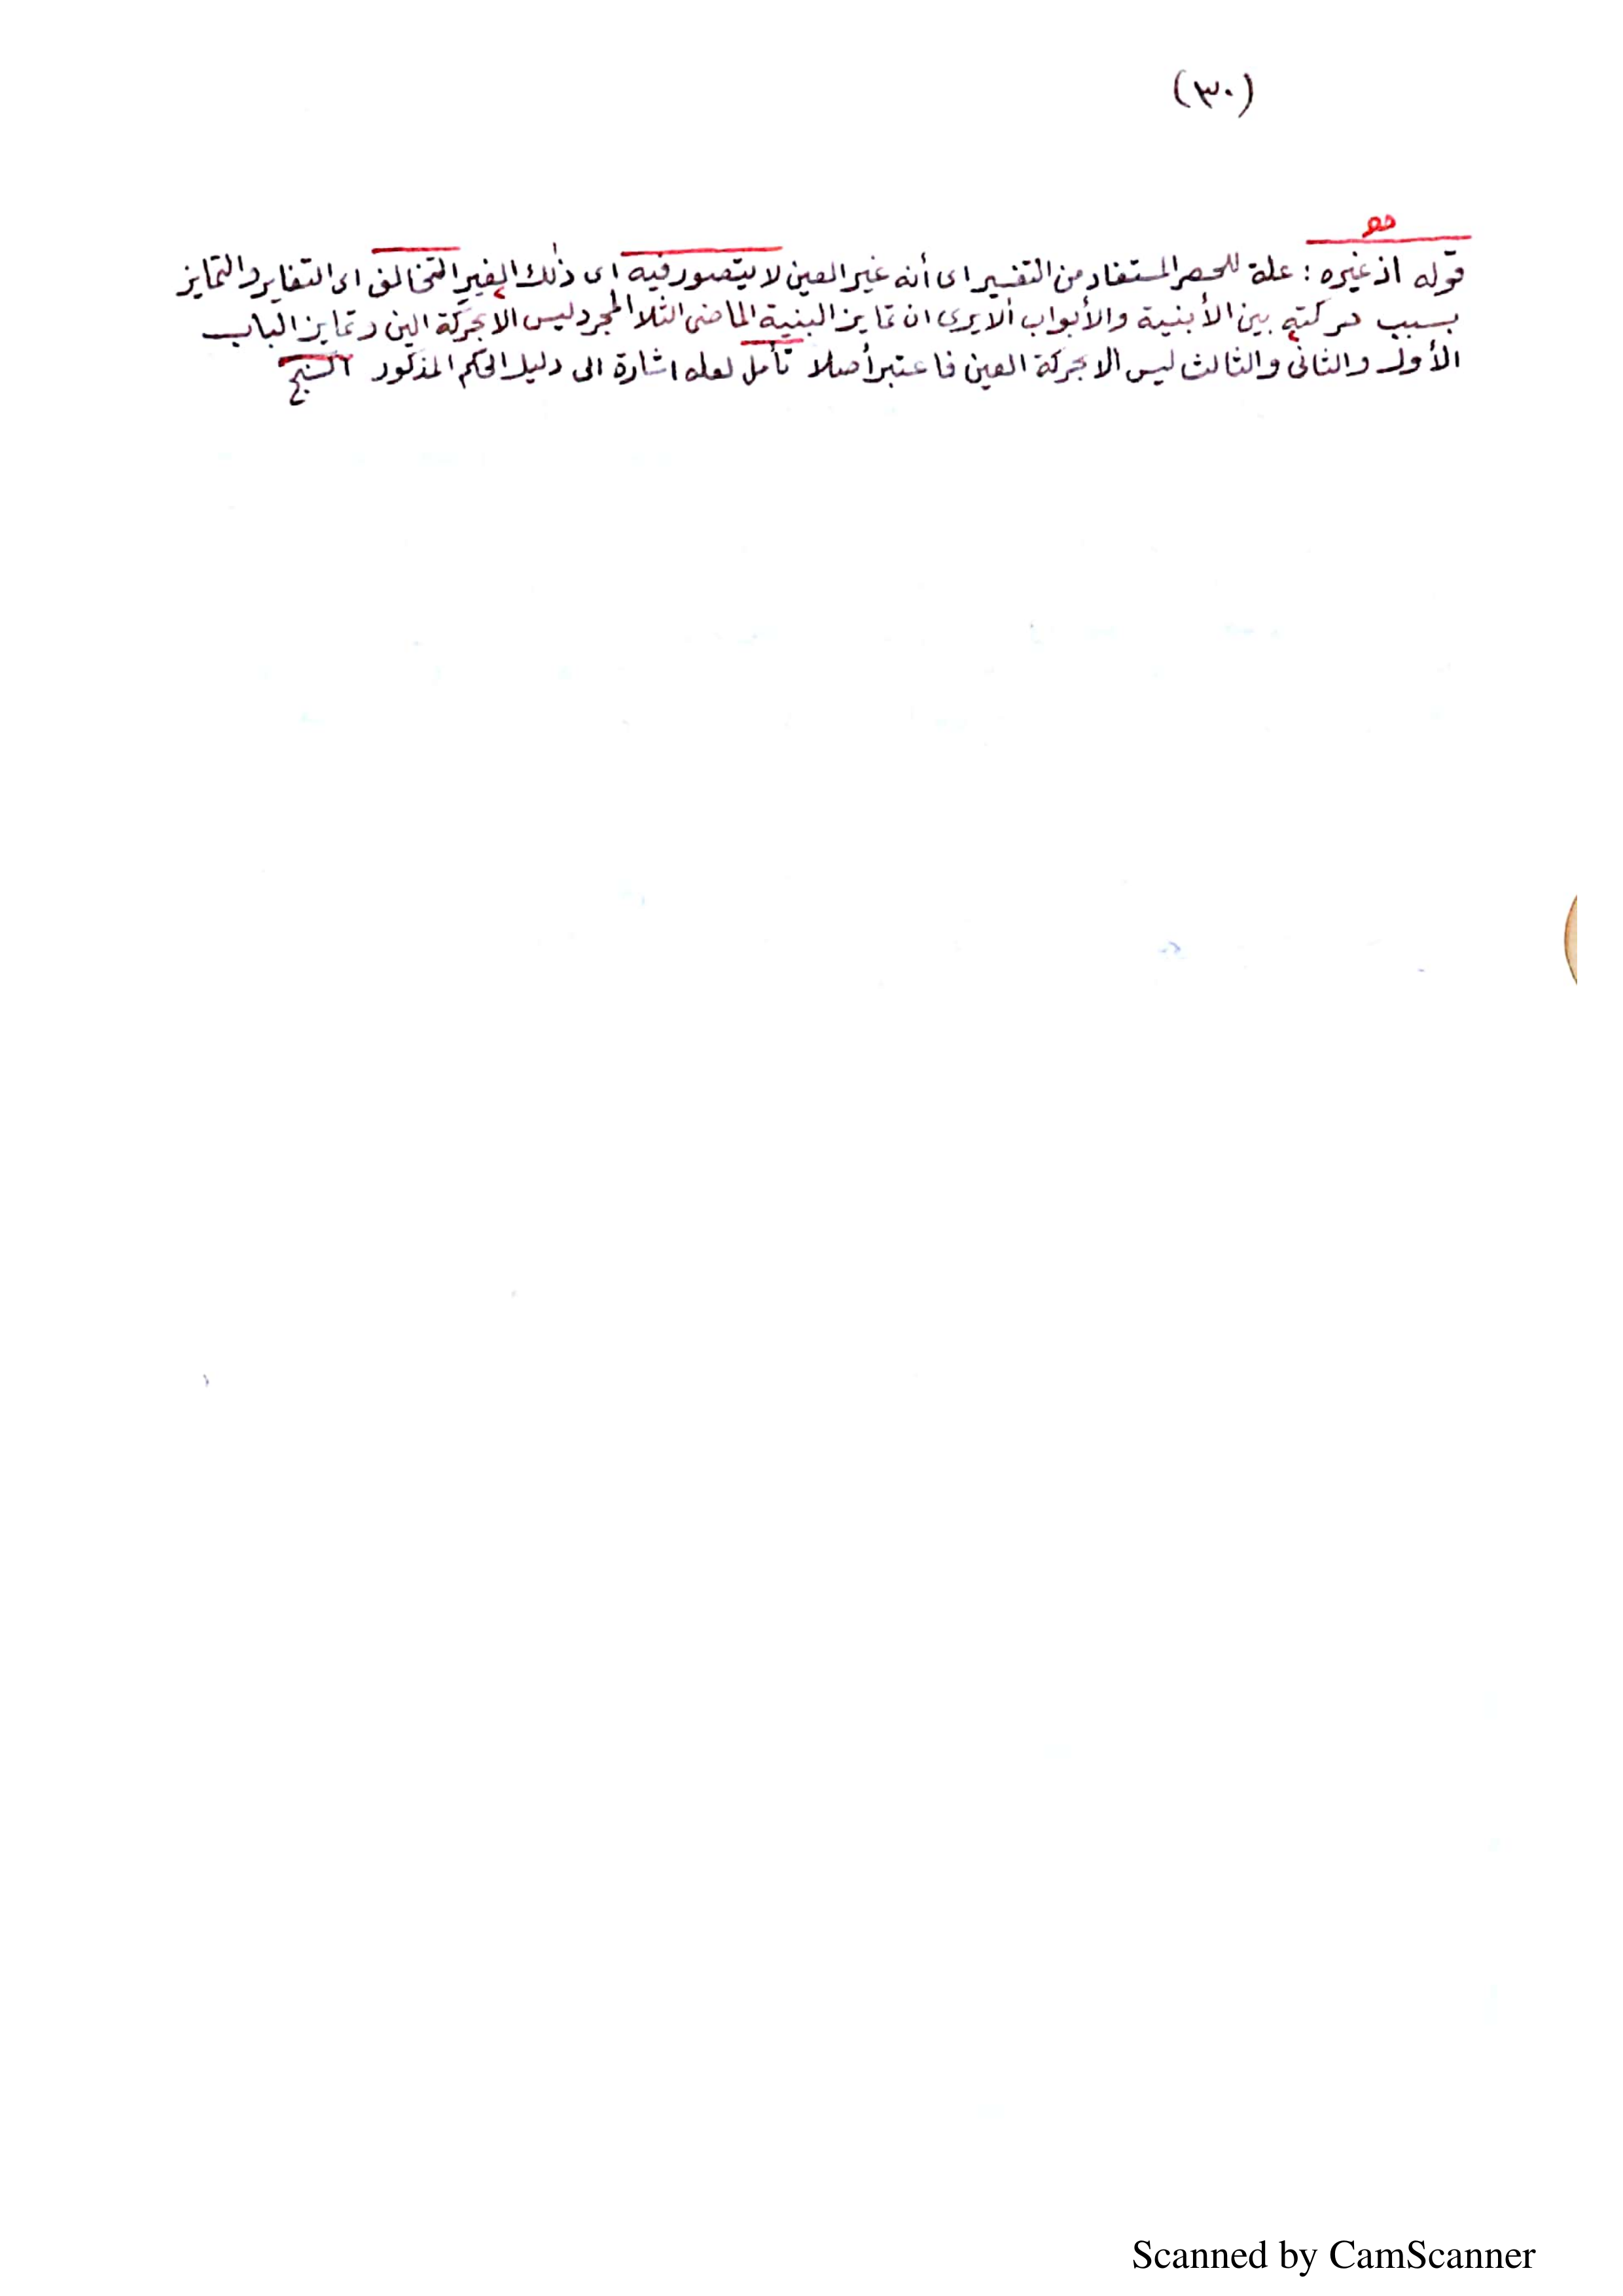 (٣٠)
قوله اذ غيره : علة للحصر المستفاد من التفسير اى أنه غير العين لا يتصور فيه اى ذلك الغير التخالف اى التغاير والتمايز
بسبب حركته بين الأبنية والأبواب ألا يرى ان تمايز البنية الماضى الثلا المجرد ليس الا بحركة الين وتمايز الباب
الأول والثانى والثالث ليس الا بحركة العين فاعتبر أصلا تأمل لعله اشارة الى دليل الحكم المذكور
Scanned by CamScanner